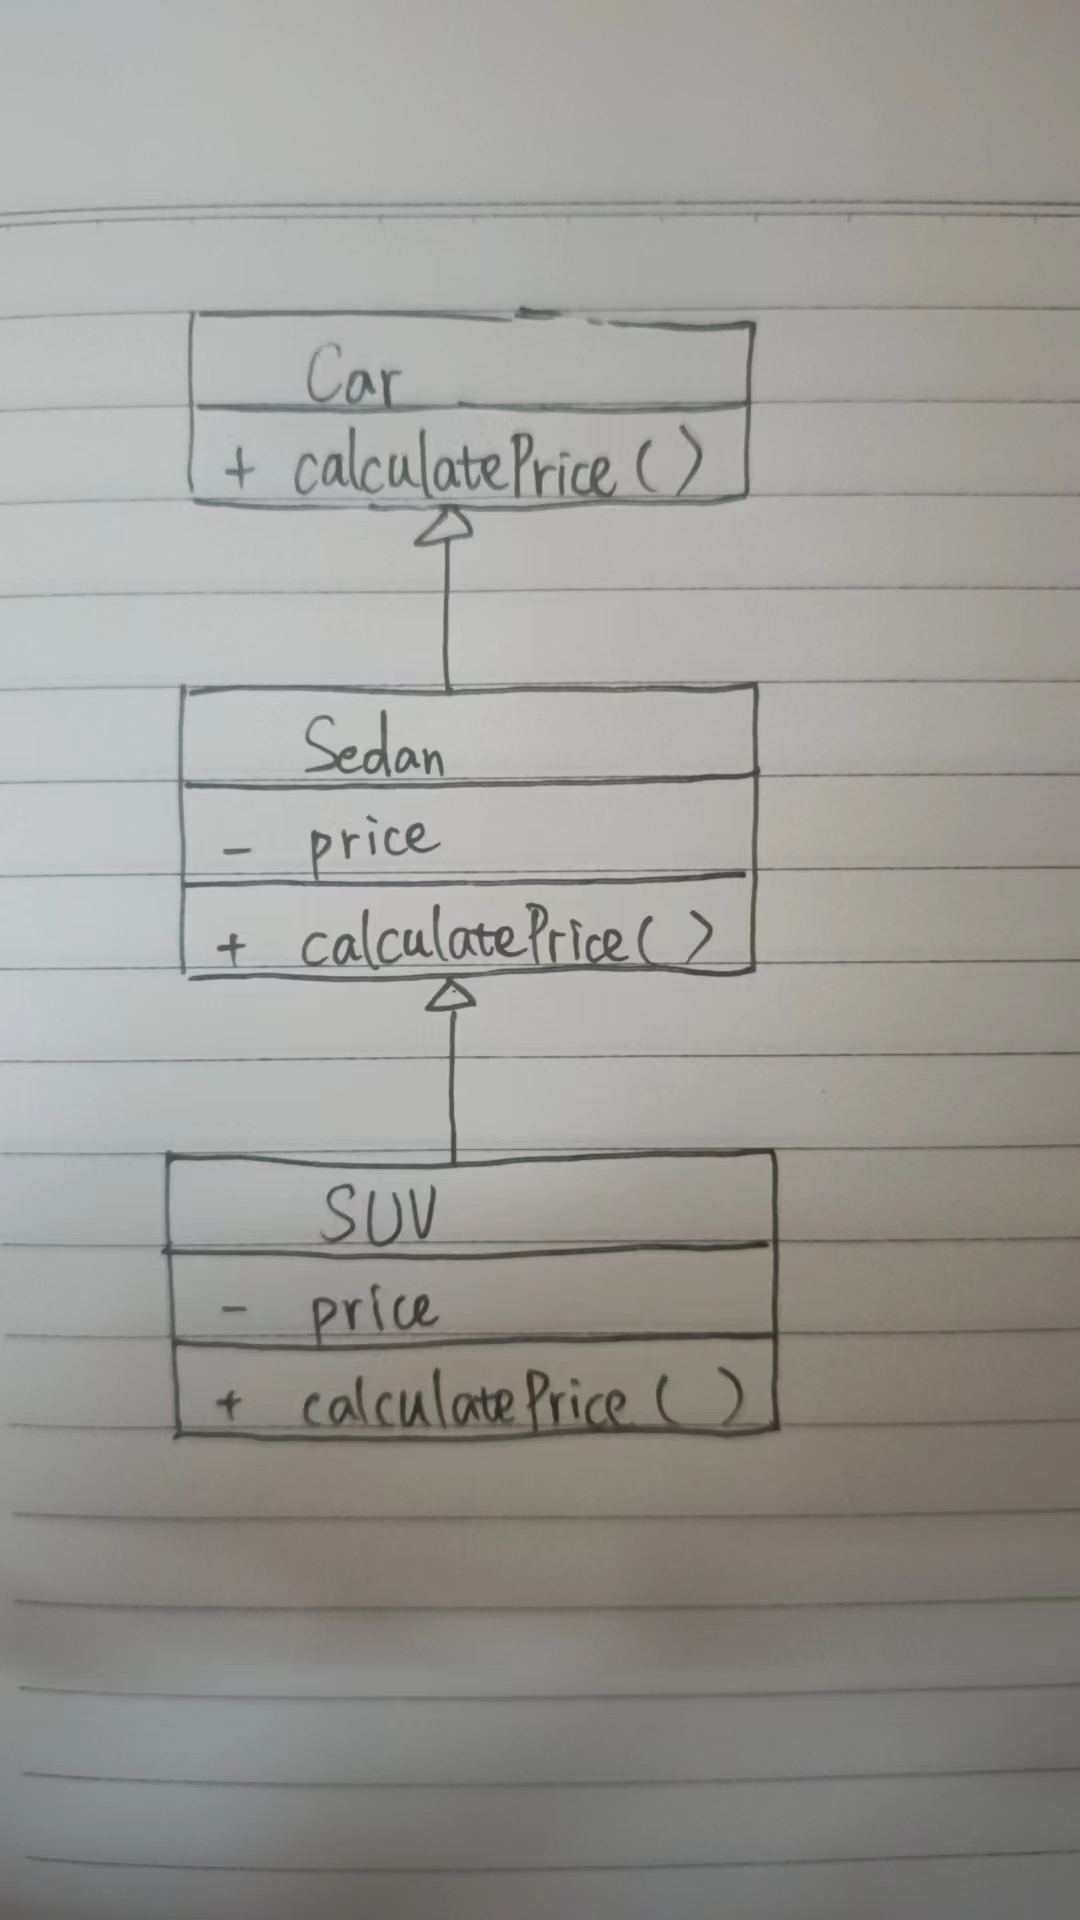 Car
+ calculatePrice()
Sedan
- price
+ calculatePrice()
SUV
- price
+ calculatePrice()